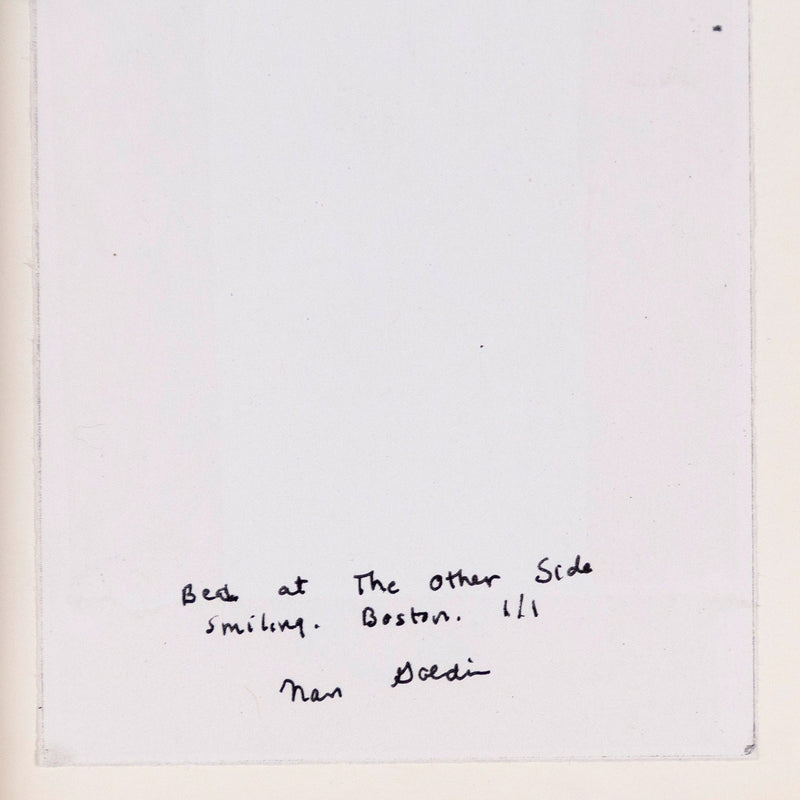 Bea at The Other Side
Smiling. Boston. 1/1
Nan Goldin